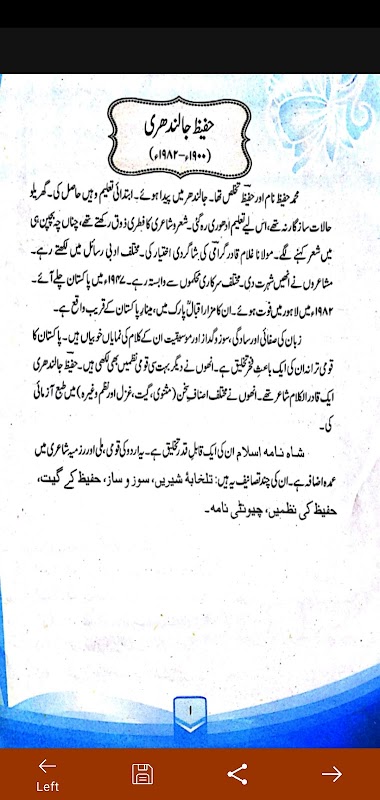 حفیظ جالندھری
(۱۹۰۰ء–۱۹۸۲ء)
محمد حفیظ نام اور حفیظؔ تخلص تھا۔ جالندھر میں پیدا ہوئے۔ ابتدائی تعلیم وہیں حاصل کی۔ گھریلو
حالات سازگار نہ تھے، اس لیے تعلیم ادھوری رہ گئی۔ شعر و شاعری کا فطری ذوق رکھتے تھے، چناں چہ بچپن ہی
میں شعر کہنے لگے۔ مولانا غلام قادر گرامی کی شاگردی اختیار کی۔ مختلف ادبی رسائل میں لکھتے رہے۔
مشاعروں نے انھیں شہرت دی۔ مختلف سرکاری محکموں سے وابستہ رہے۔ ۱۹۴۷ء میں پاکستان چلے آئے۔
۱۹۸۲ء میں لاہور میں فوت ہوئے۔ ان کا مزار اقبالؒ پارک میں، مینار پاکستان کے قریب واقع ہے۔
زبان کی صفائی اور سادگی، سوز و گداز اور موسیقیت ان کے کلام کی نمایاں خوبیاں ہیں۔ پاکستان کا
قومی ترانہ ان کی ایک باعثِ فخر تخلیق ہے۔ انھوں نے دیگر بہت سی قومی نظمیں بھی لکھی ہیں۔ حفیظؔ جالندھری
ایک قادر الکلام شاعر تھے۔ انھوں نے مختلف اصنافِ سخن (مثنوی، گیت، غزل اور نظم وغیرہ) میں طبع آزمائی
کی۔
شاہ نامہ اسلام ان کی ایک قابلِ قدر تخلیق ہے۔ یہ اردو کی قومی، ملی اور رزمیہ شاعری میں
عمدہ اضافہ ہے۔ ان کی چند تصانیف یہ ہیں: تلخابۂ شیریں، سوز و ساز، حفیظ کے گیت،
حفیظ کی نظمیں، چیونٹی نامہ۔
۱
Left